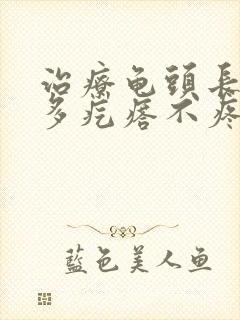 治療龟頭長
多疙瘩不疼
藍色美人鱼